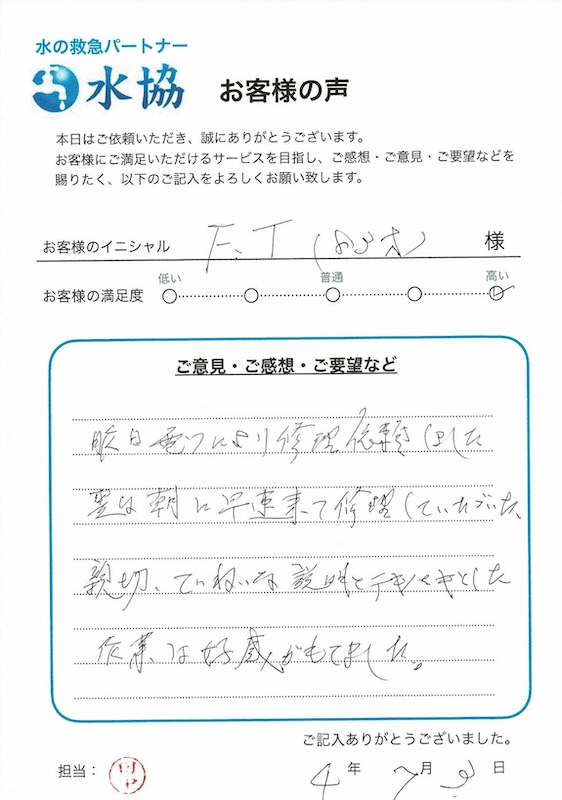 水の救急パートナー
水協 お客様の声
本日はご依頼いただき、誠にありがとうございます。
お客様にご満足いただけるサービスを目指し、ご感想・ご意見・ご要望などを
賜りたく、以下のご記入をよろしくお願い致します。
お客様のイニシャル F.T 様
低い 普通 高い
お客様の満足度
ご意見・ご感想・ご要望など
昨日電ワにより修理依頼しました
翌日朝に早速来て修理していただいた、
親切、ていねいな説明とテキパキとした
作業は好感がもてました。
ご記入ありがとうございました。
担当： 4年 7月 3日